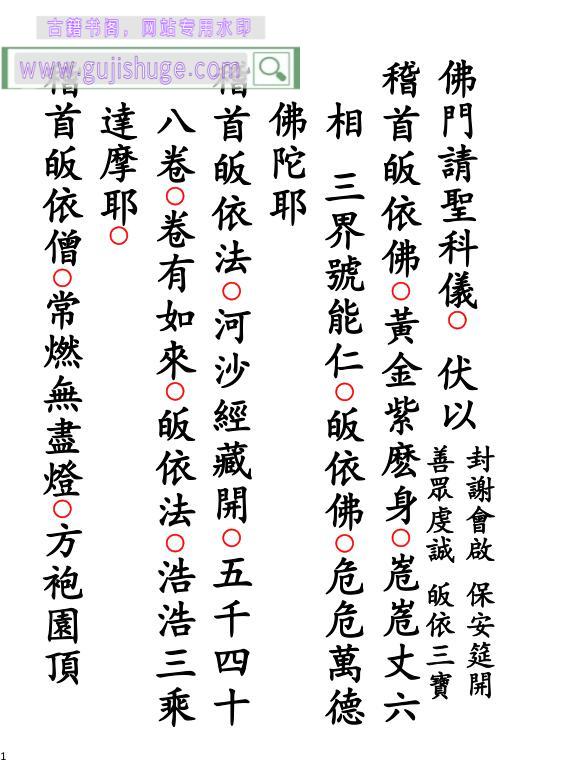 古籍书阁，网站专用水印
www.gujishuge.com
佛門請聖科儀○ 伏以
封謝會啟 保安筵開
善眾虔誠 皈依三寶
稽首皈依佛○黃金紫麽身○嵬嵬丈六
相 三界號能仁○皈依佛○危危萬德
佛陀耶
稽首皈依法○河沙經藏開○五千四十
八卷○卷有如來○皈依法○浩浩三乘
達摩耶○
稽首皈依僧○常燃無盡燈○方袍園頂
1